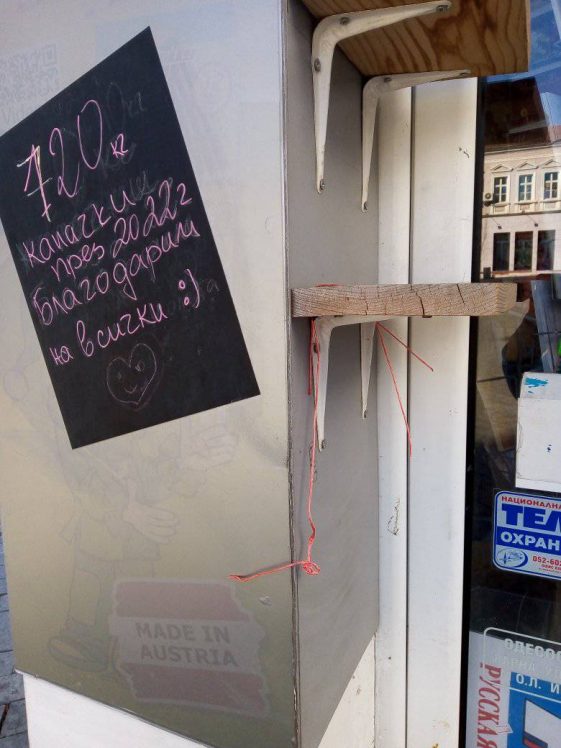 720 кг
капачки
през 2022г
Благодарим
на всички :)
MADE IN
AUSTRIA
НАЦИОНАЛНА
ТЕЛ
ОХРАН
052-60
ОДЕСОС
О.Л. И
РУССКАЯ